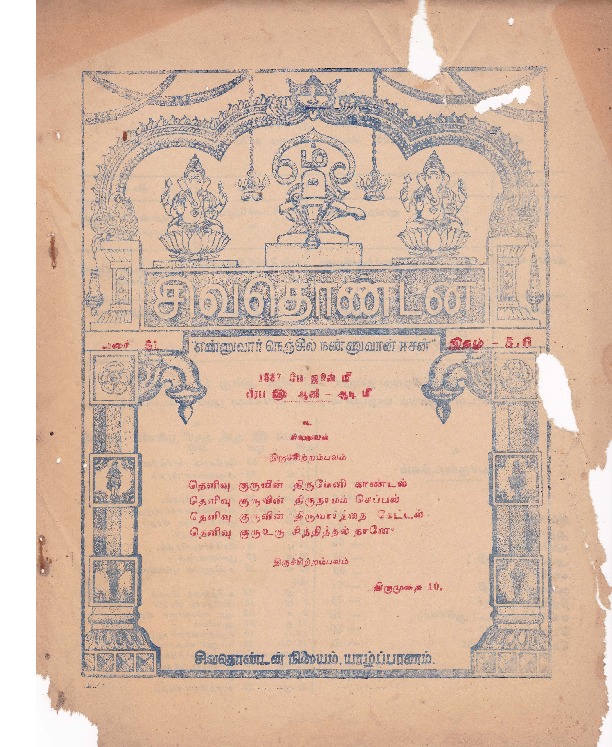 சிவதொண்டன்
மலர் 51
"எண்ணுவார் நெஞ்சில் நண்ணுவான் ஈசன்"
இதழ் - 5, 6
1987 மே ஜூன் மீ
பிரபவ ஆனி - ஆடி மீ
உ
சிவமயம்
திருச்சிற்றம்பலம்
தெளிவு குருவின் திருமேனி காண்டல்
தெளிவு குருவின் திருநாமம் செப்பல்
தெளிவு குருவின் திருவார்த்தை கேட்டல்
தெளிவு குருஉரு சிந்தித்தல் தானே
திருச்சிற்றம்பலம்
திருமுறை 10.
சிவதொண்டன் நிலையம், யாழ்ப்பாணம்.